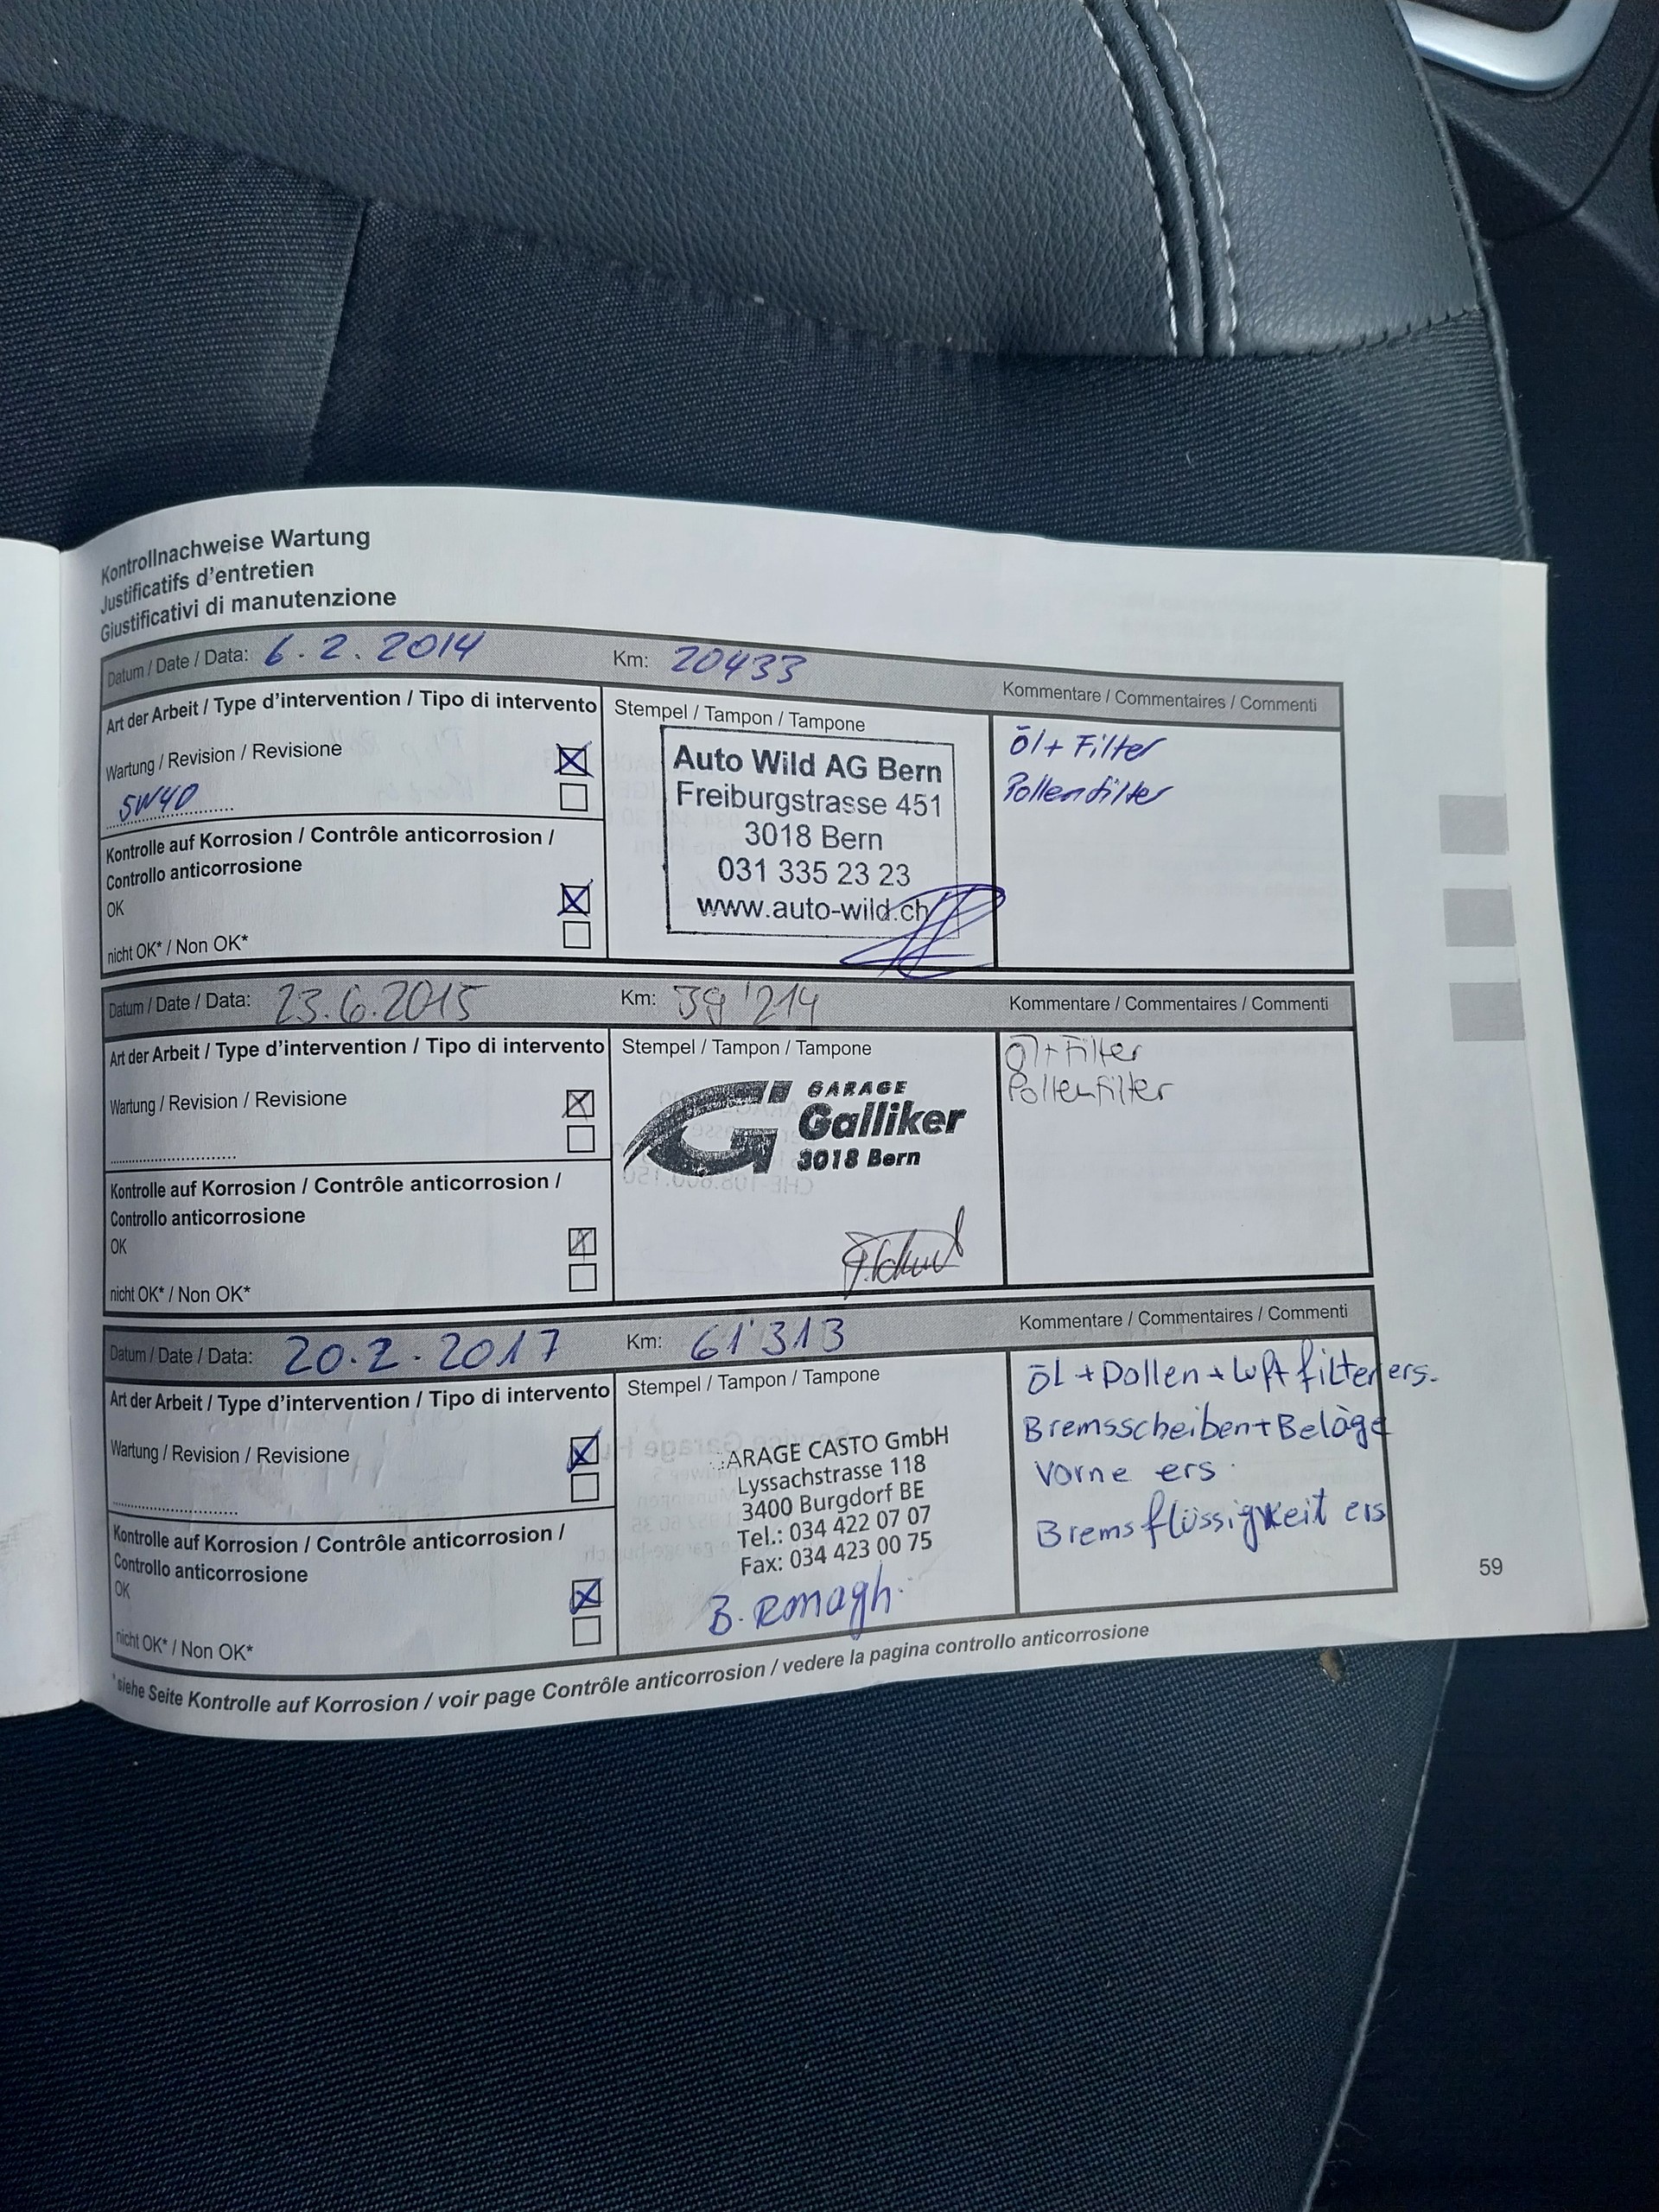 Kontrollnachweise Wartung
Justificatifs d'entretien
Giustificativi di manutenzione
Datum / Date / Data: 6.2.2014 Km: 20433
Kommentare / Commentaires / Commenti
Art der Arbeit / Type d'intervention / Tipo di intervento
Stempel / Tampon / Tampone
Wartung / Revision / Revisione
5W40
Kontrolle auf Korrosion / Contrôle anticorrosion /
Controllo anticorrosione
OK
nicht OK* / Non OK*
Auto Wild AG Bern
Freiburgstrasse 451
3018 Bern
031 335 23 23
www.auto-wild.ch
Öl + Filter
Pollenfilter
Datum / Date / Data: 23.6.2015 Km: 39'214
Kommentare / Commentaires / Commenti
Art der Arbeit / Type d'intervention / Tipo di intervento
Stempel / Tampon / Tampone
Wartung / Revision / Revisione
Kontrolle auf Korrosion / Contrôle anticorrosion /
Controllo anticorrosione
OK
nicht OK* / Non OK*
GARAGE
Galliker
3018 Bern
Öl + Filter
Pollenfilter
Datum / Date / Data: 20.2.2017 Km: 61'313
Kommentare / Commentaires / Commenti
Art der Arbeit / Type d'intervention / Tipo di intervento
Stempel / Tampon / Tampone
Wartung / Revision / Revisione
Kontrolle auf Korrosion / Contrôle anticorrosion /
Controllo anticorrosione
OK
nicht OK* / Non OK*
ARAGE CASTO GmbH
Lyssachstrasse 118
3400 Burgdorf BE
Tel.: 034 422 07 07
Fax: 034 423 00 75
öL + Pollen + Luft filter ers.
Bremsscheiben + Beläge
vorne ers.
Bremsflüssigkeit ers
59
*siehe Seite Kontrolle auf Korrosion / voir page Contrôle anticorrosion / vedere la pagina controllo anticorrosione